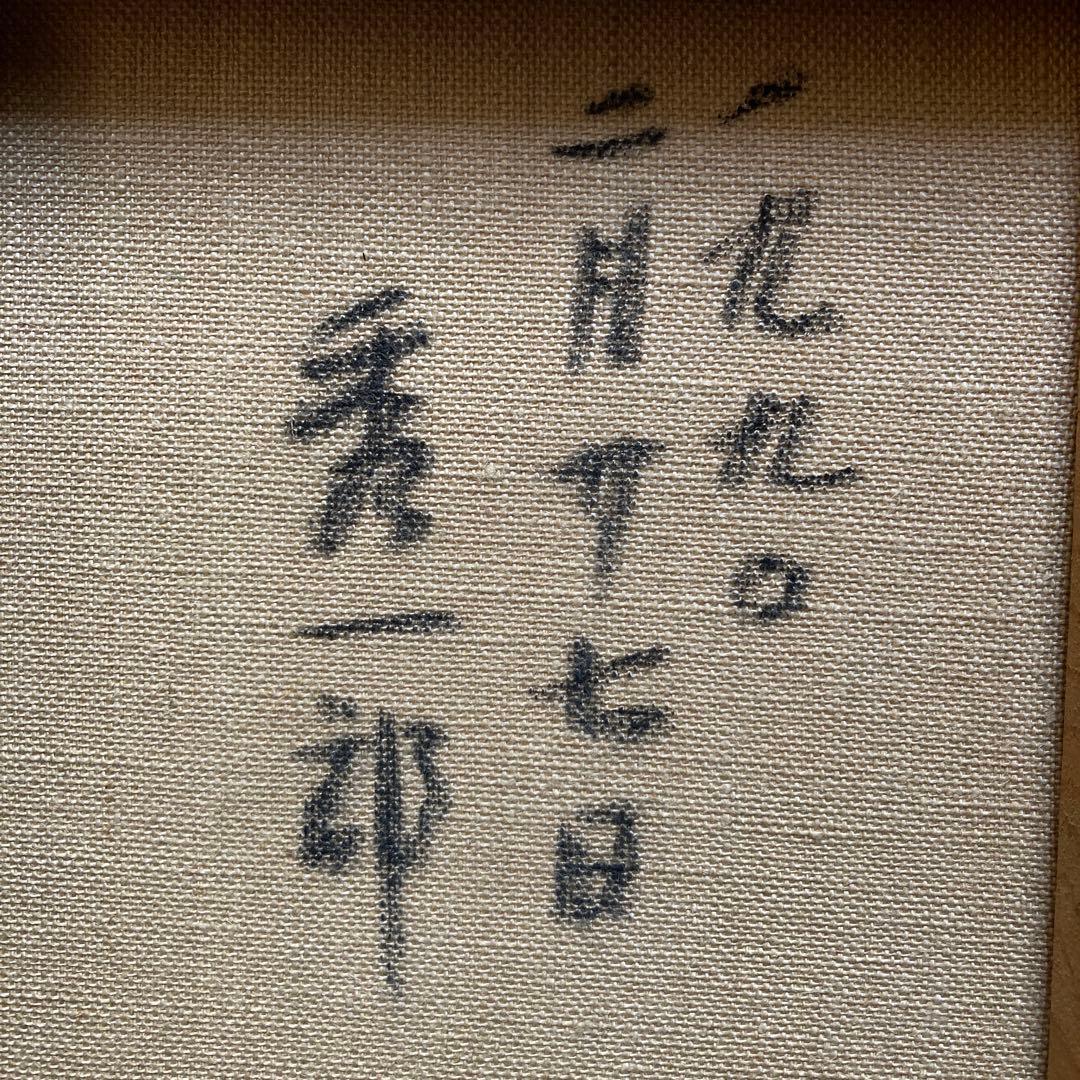 一九九〇
二月十七日
秀一郎